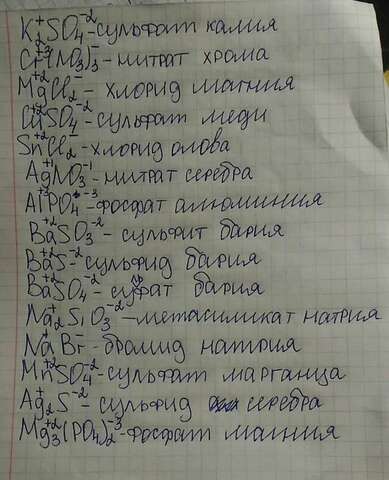 K₂⁺SO₄⁻² - сульфат калия
Cr⁺³(NO₃)₃⁻ - нитрат хрома
Mg⁺²Cl₂⁻ - хлорид магния
Cu⁺²SO₄⁻² - сульфат меди
Sn⁺²Cl₂⁻ - хлорид олова
Ag⁺¹NO₃⁻¹ - нитрат серебра
Al⁺³PO₄⁻³ - фосфат алюминия
Ba⁺²SO₃⁻² - сульфит бария
Ba⁺²S⁻² - сульфид бария
Ba⁺²SO₄⁻² - сульфат бария
Na₂⁺SiO₃⁻² - метасиликат натрия
Na⁺Br⁻ - бромид натрия
Mn⁺²SO₄⁻² - сульфат марганца
Ag₂⁺S⁻² - сульфид серебра
Mg₃⁺²(PO₄)₂⁻³ - фосфат магния